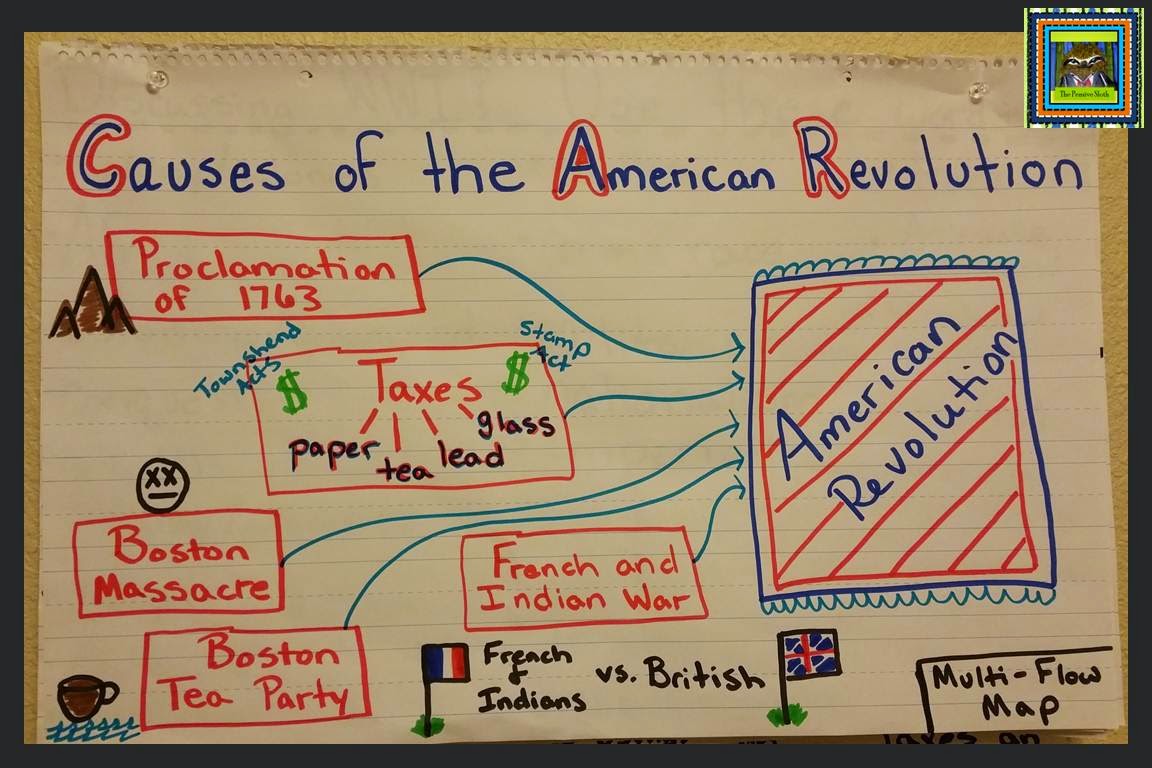 The Pensive Sloth
Causes of the American Revolution
Proclamation
of 1763
Townshend
Acts
Stamp
Act
$
$
Taxes
paper
tea
lead
glass
Boston
Massacre
French and
Indian War
Boston
Tea Party
American
Revolution
French
&
Indians
vs. British
Multi-Flow
Map